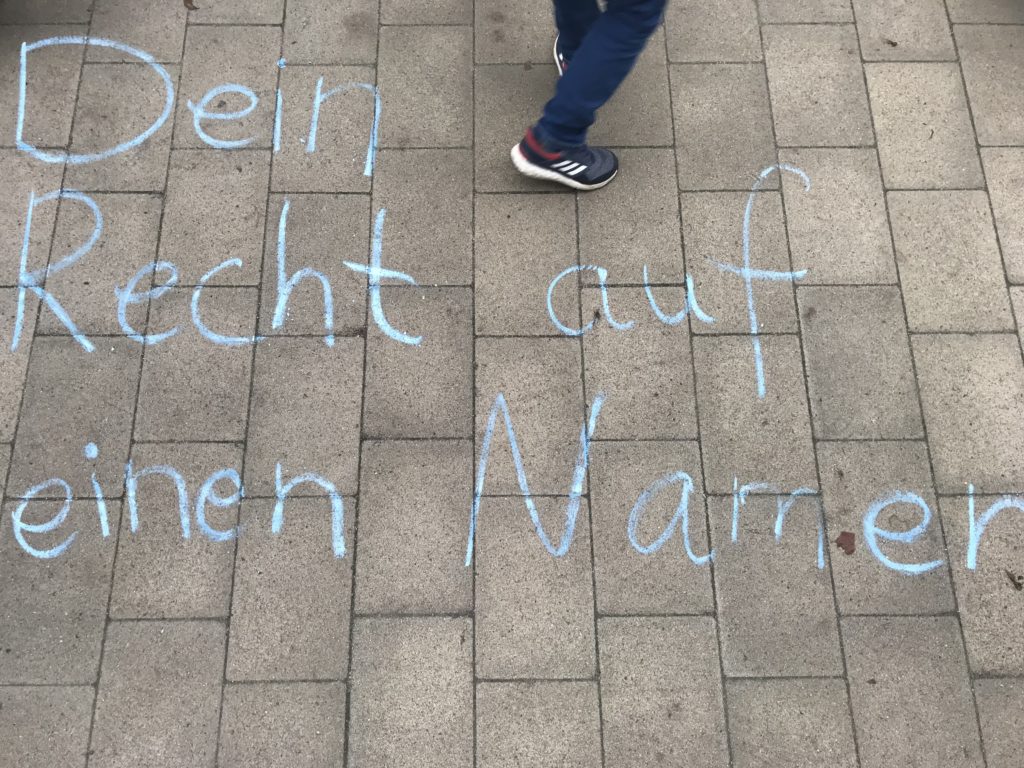 Dein
Recht auf
einen Namen